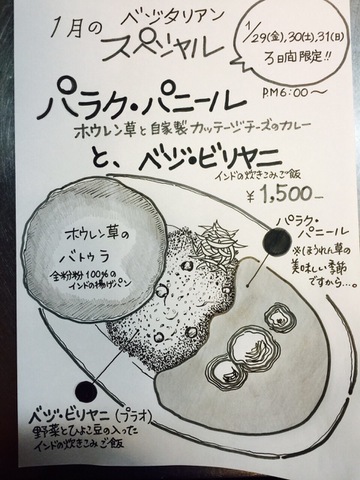 1月の ベジタリアン
スペシャル
1/29(金),30(土),31(日)
3日間限定!!
P.M6:00〜
パラク・パニール
ホウレン草と自家製カッテージチーズのカレー
と、ベジ・ビリヤニ
インドの炊きこみご飯
¥1,500-
パラク・
パニール
※(ほうれん草の
美味しい季節
ですから…。)
ホウレン草の
バトゥラ
全粒粉100%の
インドの揚げパン
ベジ・ビリヤニ(プラオ)
野菜とひよこ豆の入った
インドの炊きこみご飯